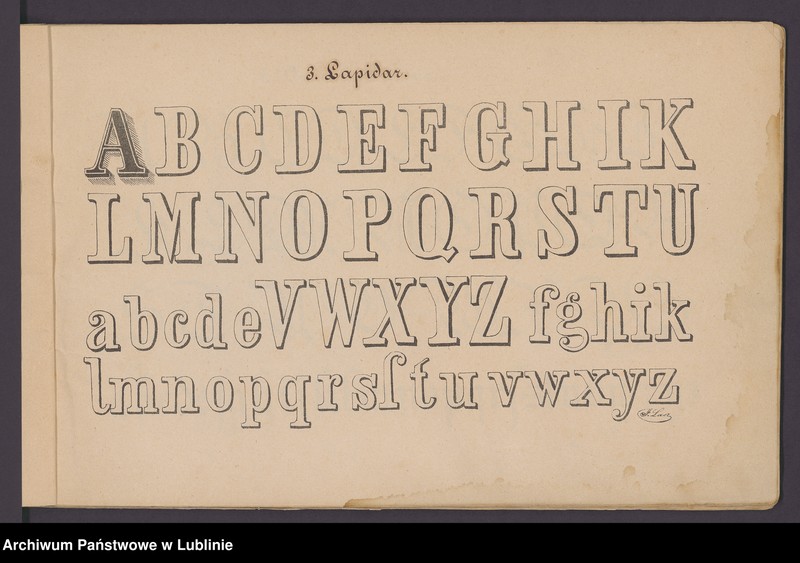 3. Lapidar.
A B C D E F G H I K
L M N O P Q R S T U
a b c d e V W X Y Z f g h i k
l m n o p q r s ſ t u v w x y z
Archiwum Państwowe w Lublinie